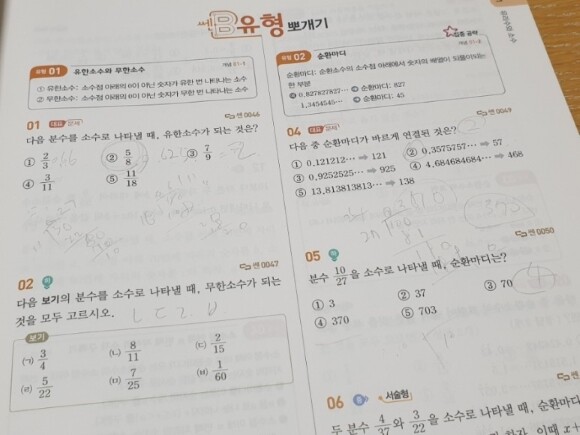 쎈 B유형 뽀개기
유리수와 소수
유형 01 유한소수와 무한소수 개념 01-1
① 유한소수: 소수점 아래에 0이 아닌 숫자가 유한 번 나타나는 소수
② 무한소수: 소수점 아래에 0이 아닌 숫자가 무한 번 나타나는 소수
01 대표문제 쎈 0046
다음 분수를 소수로 나타낼 때, 유한소수가 되는 것은?
① 2/3 ② 5/8 ③ 7/9
④ 3/11 ⑤ 11/18
02 하 쎈 0047
다음 보기의 분수를 소수로 나타낼 때, 무한소수가 되는
것을 모두 고르시오.
보기
(ㄱ) 3/4 (ㄴ) 8/11 (ㄷ) 2/15
(ㄹ) 5/22 (ㅁ) 7/25 (ㅂ) 1/60
유형 02 순환마디 집중 공략
순환마디: 순환소수의 소수점 아래에서 숫자의 배열이 되풀이되는
한 부분
0.827827827… 순환마디: 827
1.3454545… 순환마디: 45
04 대표문제 쎈 0049
다음 중 순환마디가 바르게 연결된 것은?
① 0.121212… → 121 ② 0.3575757… → 57
③ 0.9252525… → 925 ④ 4.684684684… → 468
⑤ 13.813813813… → 138
05 하 쎈 0050
분수 10/27 을 소수로 나타낼 때, 순환마디는?
① 3 ② 37 ③ 70
④ 370 ⑤ 703
06 중 서술형
두 분수 4/37 와 3/22 을 소수로 나타낼 때, 순환마디
이때 x+